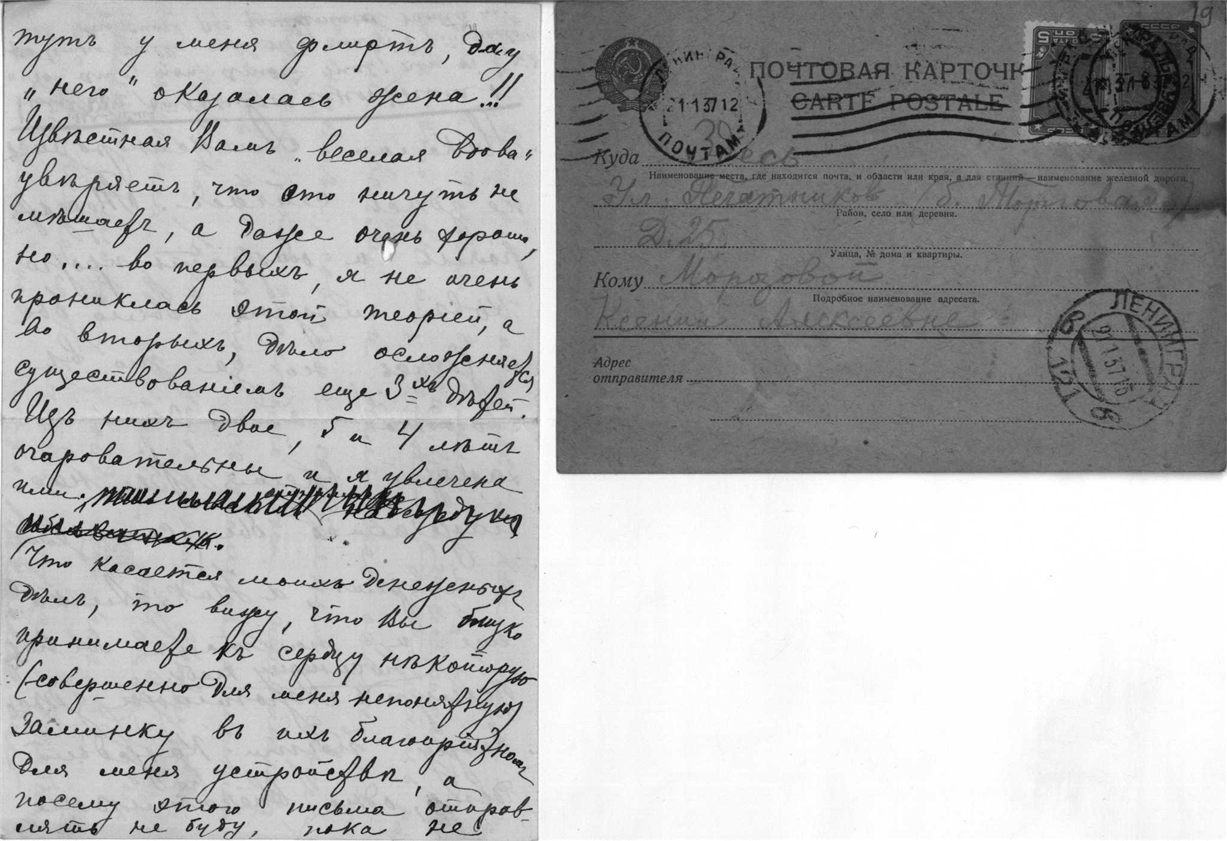 тутъ у меня флиртъ, да у
„него" оказалась жена!!!
Извѣстная Вамъ „веселая вдова"
увѣряетъ, что это ничуть не
мѣшаетъ, а даже очень хорошо,
но.... во первыхъ, я не очень
прониклась этой теоріей, а
во вторыхъ, дѣло осложняется
существованіемъ еще 3хъ дѣтей.
Изъ нихъ двое, 5 и 4 лѣтъ
очаровательны и я увлечена
ими
Что касается моихъ денежныхъ
дѣлъ, то вижу, что Вы близко
принимаете къ сердцу нѣкоторую
(совершенно для меня непонятную)
заминку въ ихъ благопріятномъ
для меня устройствѣ, а
посему этого письма отправ-
лять не буду, пока не
19
ПОЧТОВАЯ КАРТОЧК
CARTE POSTALE
ЛЕНИНГРА
21-1-37 12
ПОЧТАМ
39
Куда
Наименование места, где находится почта, и области или края, а для станций—наименование железной дороги.
Ул. Печатников (б. Торговая)
Район, село или деревня.
Д. 25.
Улица, № дома и квартиры.
Кому Морозовой
Подробное наименование адресата.
Ксении Алексеевне
Адрес
отправителя
ЛЕНИНГРАД
21 1 37 15
121